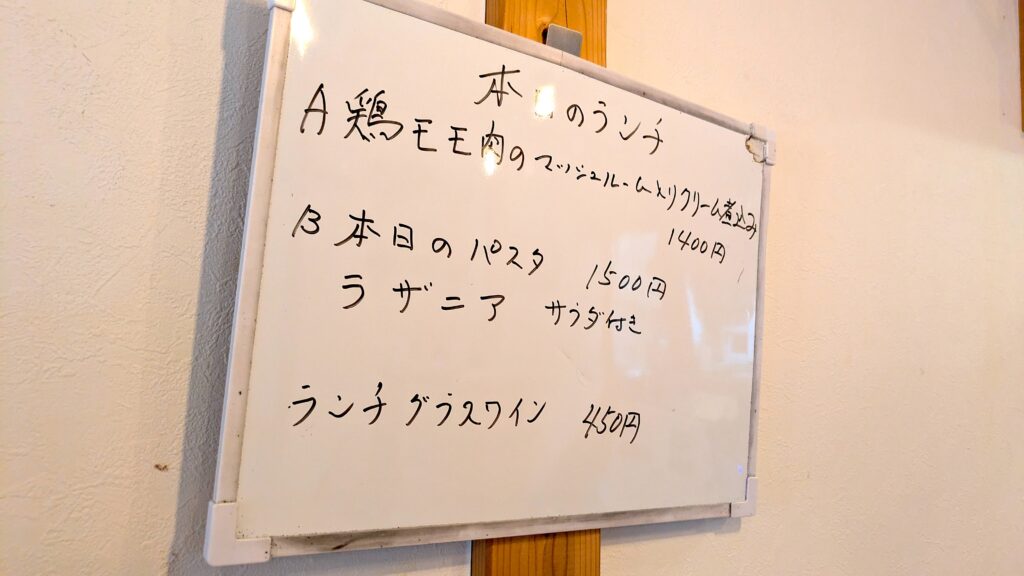 本日のランチ
A 鶏モモ肉のマッシュルーム入りクリーム煮込み
1400円
B 本日のパスタ 1500円
ラザニア サラダ付き
ランチグラスワイン 450円